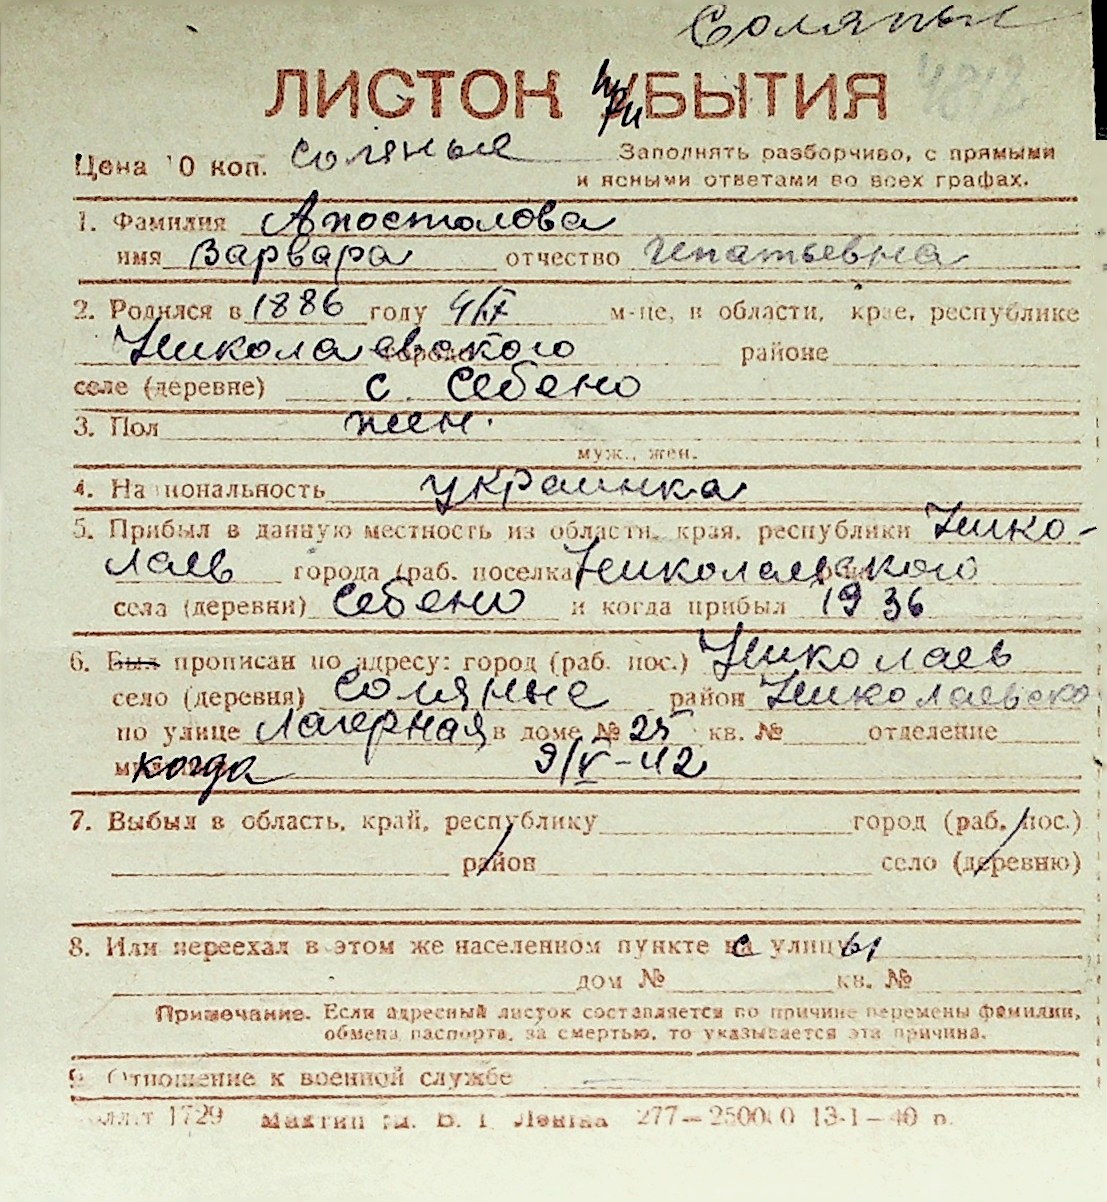 Соляные
4812
ЛИСТОК при УБЫТИЯ
Цена 10 коп. Соляные Заполнять разборчиво, с прямыми
и ясными ответами во всех графах.
1. Фамилия Апостолова
имя Варвара отчество Игнатьевна
2. Родился в 1886 году 4/IX м-це, в области, крае, республике
Николаевского города районе
селе (деревне) с Себено
3. Пол жен.
муж., жен.
4. Национальность украинка
5. Прибыл в данную местность из области, края, республики Нико-
лаев города (раб. поселка Николаевского
села (деревни) Себено и когда прибыл 1936
6. Был прописан по адресу: город (раб. пос.) Николаев
село (деревня) Соляные район Николаевско
по улице Лагерная в доме № 25 кв. № отделение
когда 9/V-42
7. Выбыл в область, край, республику город (раб. пос.)
район село (деревню)
8. Или переехал в этом же населенном пункте с улицы
дом № кв. №
Примечание. Если адресный листок составляется по причине перемены фамилии,
обмена паспорта, за смертью, то указывается эта причина.
9. Отношение к военной службе
1729 277—250000 13-1—40 р.